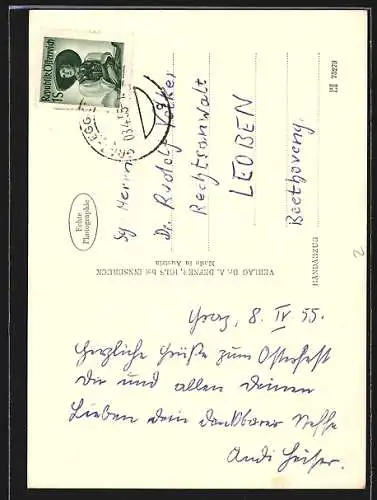 Republik Österreich
1 S
EGG
Sg Herrn
Dr. Rudolf
Rechtsanwalt
LEOBEN
Beethoveng.
Echte
Photographie
VERLAG DR. A. DEFNER, IGLS bei INNSBRUCK
Made in Austria
HANDABZUG
75273
2
Graz, 8. IV 55.
Herzliche Grüße zum Osterfest
Dir und allen Deinen
Lieben dein dankbarer Neffe
Andi